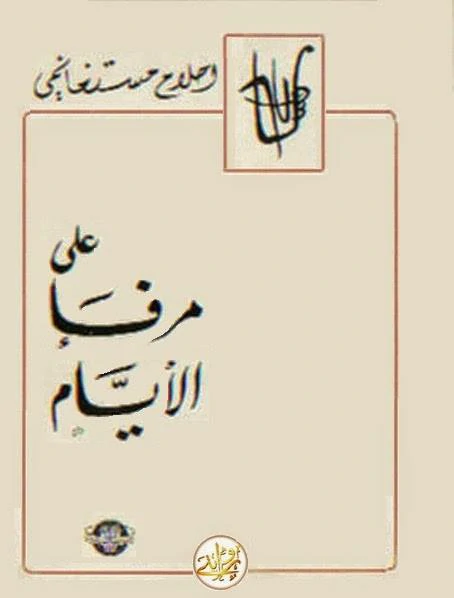 احلام مستغانمي
على
مرفإ
الأيّام